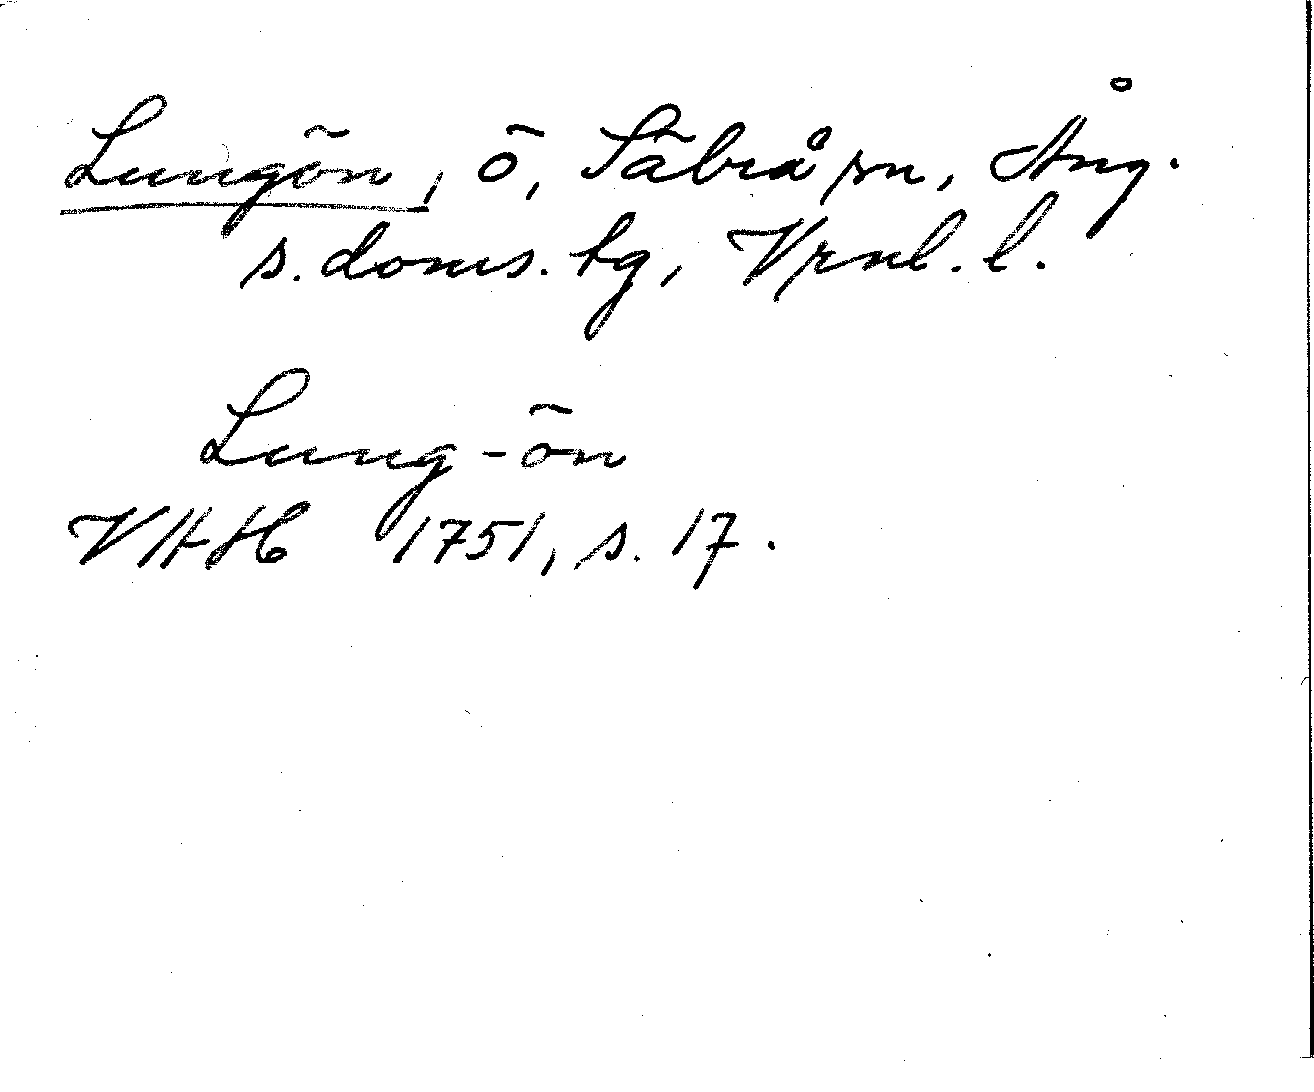 Lungön, ö, Säbrå sn, Ång.
s. doms. tg, Vrnl. l.
Lung-ön
VHH 1751, s. 17.